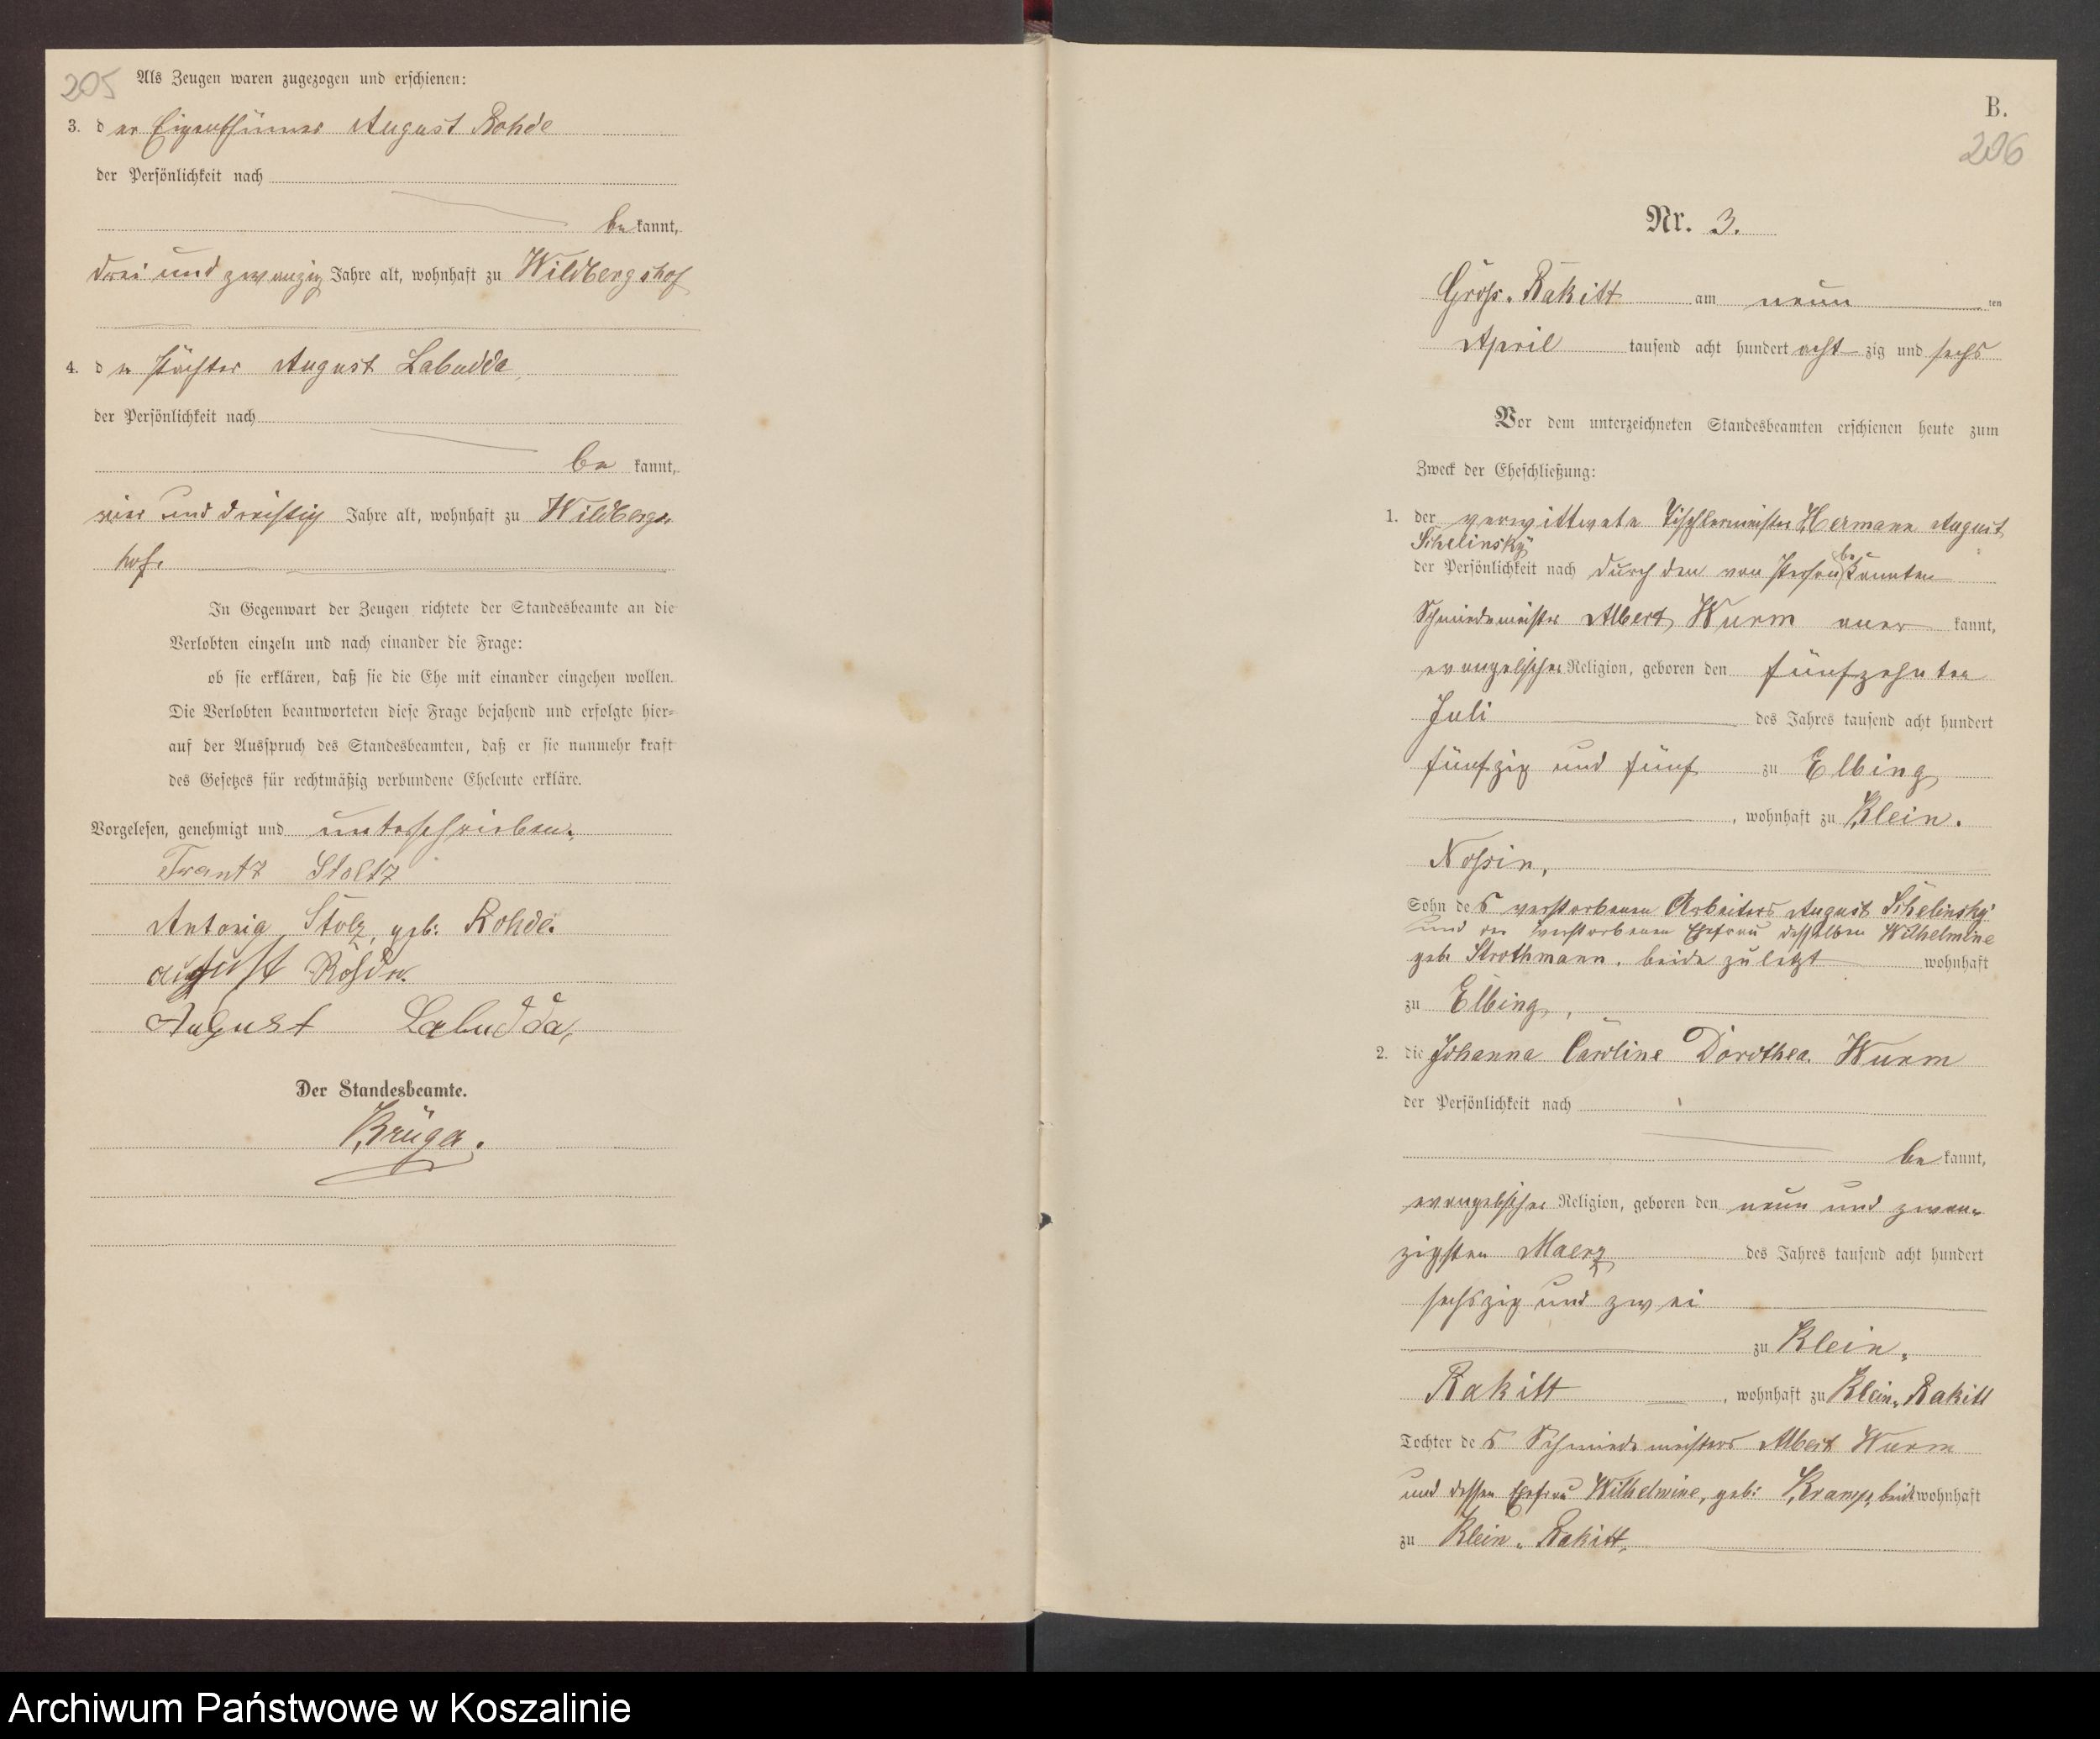 205
Als Zeugen waren zugezogen und erschienen:
3. der Eigenthümer August Rohde
der Persönlichkeit nach
bekannt,
drei und zwanzig Jahre alt, wohnhaft zu Wildbergshof
4. der Pächter August Labudda,
der Persönlichkeit nach
be kannt,
vier und dreißig Jahre alt, wohnhaft zu Wildbergs-
hof.
In Gegenwart der Zeugen richtete der Standesbeamte an die
Verlobten einzeln und nach einander die Frage:
ob sie erklären, daß sie die Ehe mit einander eingehen wollen.
Die Verlobten beantworteten diese Frage bejahend und erfolgte hier=
auf der Ausspruch des Standesbeamten, daß er sie nunmehr kraft
des Gesetzes für rechtmäßig verbundene Eheleute erkläre.
Vorgelesen, genehmigt und unterschrieben.
Frantz Stoltz
Antonia Stolz, geb: Rohde.
August Rohde.
August Labudda,
Der Standesbeamte.
Krüger.
B.
206
Nr. 3.
Groß-Rakitt am neun ten
April tausend acht hundert acht zig und sechs
Vor dem unterzeichneten Standesbeamten erschienen heute zum
Zweck der Eheschließung:
1. der verwittwete Tischlermeister Hermann August
Schelinsky
der Persönlichkeit nach durch den von Person bekannten
Schmiedemeister Albert Wurm aner kannt,
evangelischer Religion, geboren den fünfzehnten
Juli des Jahres tausend acht hundert
fünfzig und fünf zu Elbing
, wohnhaft zu Klein-
Nossin,
Sohn des verstorbenen Arbeiters August Schelinsky
und der verstorbenen Ehefrau desselben Wilhelmine
geb. Strothmann, beide zuletzt wohnhaft
zu Elbing,
2. die Johanna Caroline Dorothea Wurm
der Persönlichkeit nach
be kannt,
evangelischer Religion, geboren den neun und zwan-
zigsten Maerz des Jahres tausend acht hundert
sechszig und zwei
zu Klein-
Rakitt, wohnhaft zu Klein-Rakitt
Tochter des Schmiedemeisters Albert Wurm
und dessen Ehefrau Wilhelmine, geb: Kramp, beide wohnhaft
zu Klein-Rakitt,
Archiwum Państwowe w Koszalinie